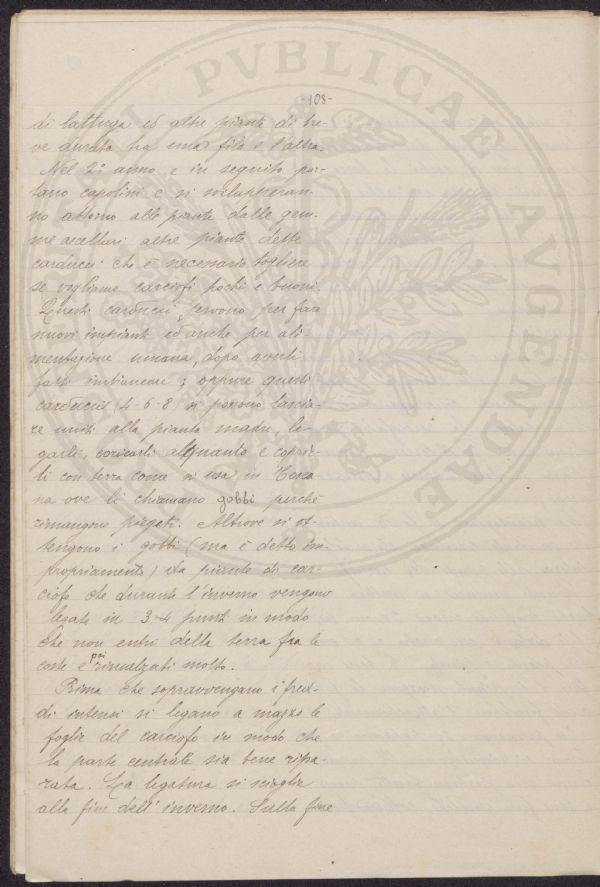 -108-
di lattuga ed altre piante di bre-
ve durata fra una fila e l'altra.
Nel 2° anno e in seguito por-
tano capolini e si svilupperan-
no attorno alle piante dalle gem-
me ascellari altre piante dette
carducci che è necessario togliere
se vogliamo carciofi pochi e buoni.
Questi carducci servono per fare
nuovi impianti ed anche per ali-
mentazione umana, dopo averli
fatti imbiancare; oppure questi
carducci (4-6-8) si possono lascia-
re uniti alla pianta madre, le-
garli, coricarli alquanto e coprir-
li con terra come si usa in Tosca
na ove li chiamano gobbi perché
rimangono piegati. Altrove si ot-
tengono i gobbi (ma è detto im-
propriamente) da piante di car-
ciofo che durante l'inverno vengono
legate in 3-4 punti in modo
che non entri della terra fra le
coste e poi rincalzati molto.
Prima che sopravvengano i fred-
di intensi si legano a mazzo le
foglie del carciofo in modo che
la parte centrale sia bene ripa-
rata. La legatura si scioglie
alla fine dell'inverno. Sulla fine
PVBLICAE AVGENDAE